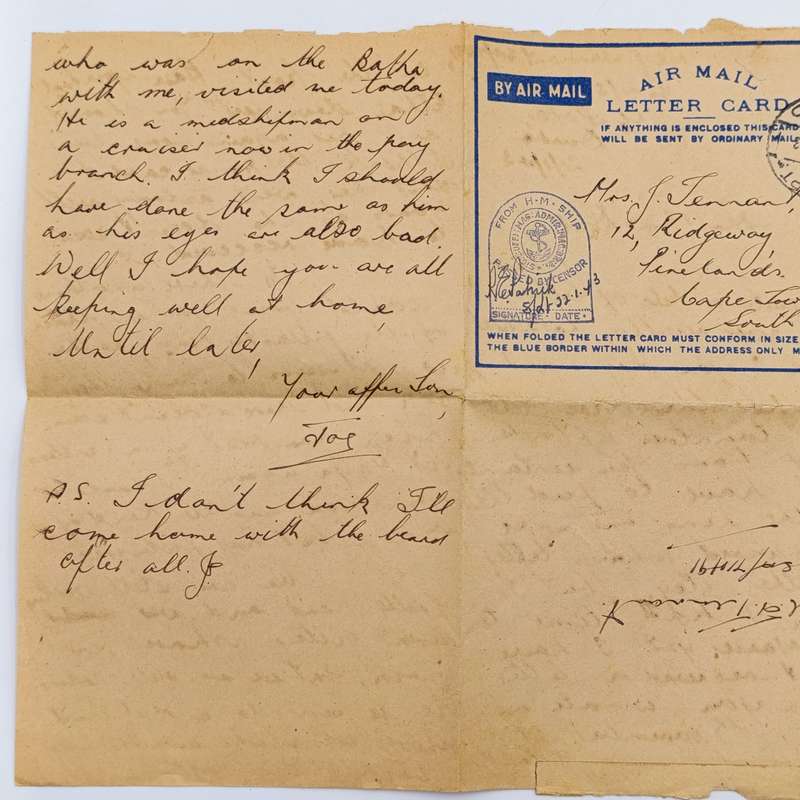 who was on the Batha
with me, visited me today.
He is a midshipman on
a cruiser now in the pay
branch. I think I should
have done the same as him
as his eyes are also bad.
Well I hope you are all
keeping well at home,
Until later,
Your affec Son,
Joe
P.S. I don't think I'll
come home with the beard
after all. J
BY AIR MAIL
AIR MAIL
LETTER CARD
IF ANYTHING IS ENCLOSED THIS CARD
WILL BE SENT BY ORDINARY MAIL
Mrs. J. Tennan
12, Ridgeway,
Pinelands
Cape Tow
South
FROM H.M. SHIP
PASSED BY CENSOR
22.1.43
SIGNATURE · DATE ·
WHEN FOLDED THE LETTER CARD MUST CONFORM IN SIZE
THE BLUE BORDER WITHIN WHICH THE ADDRESS ONLY M